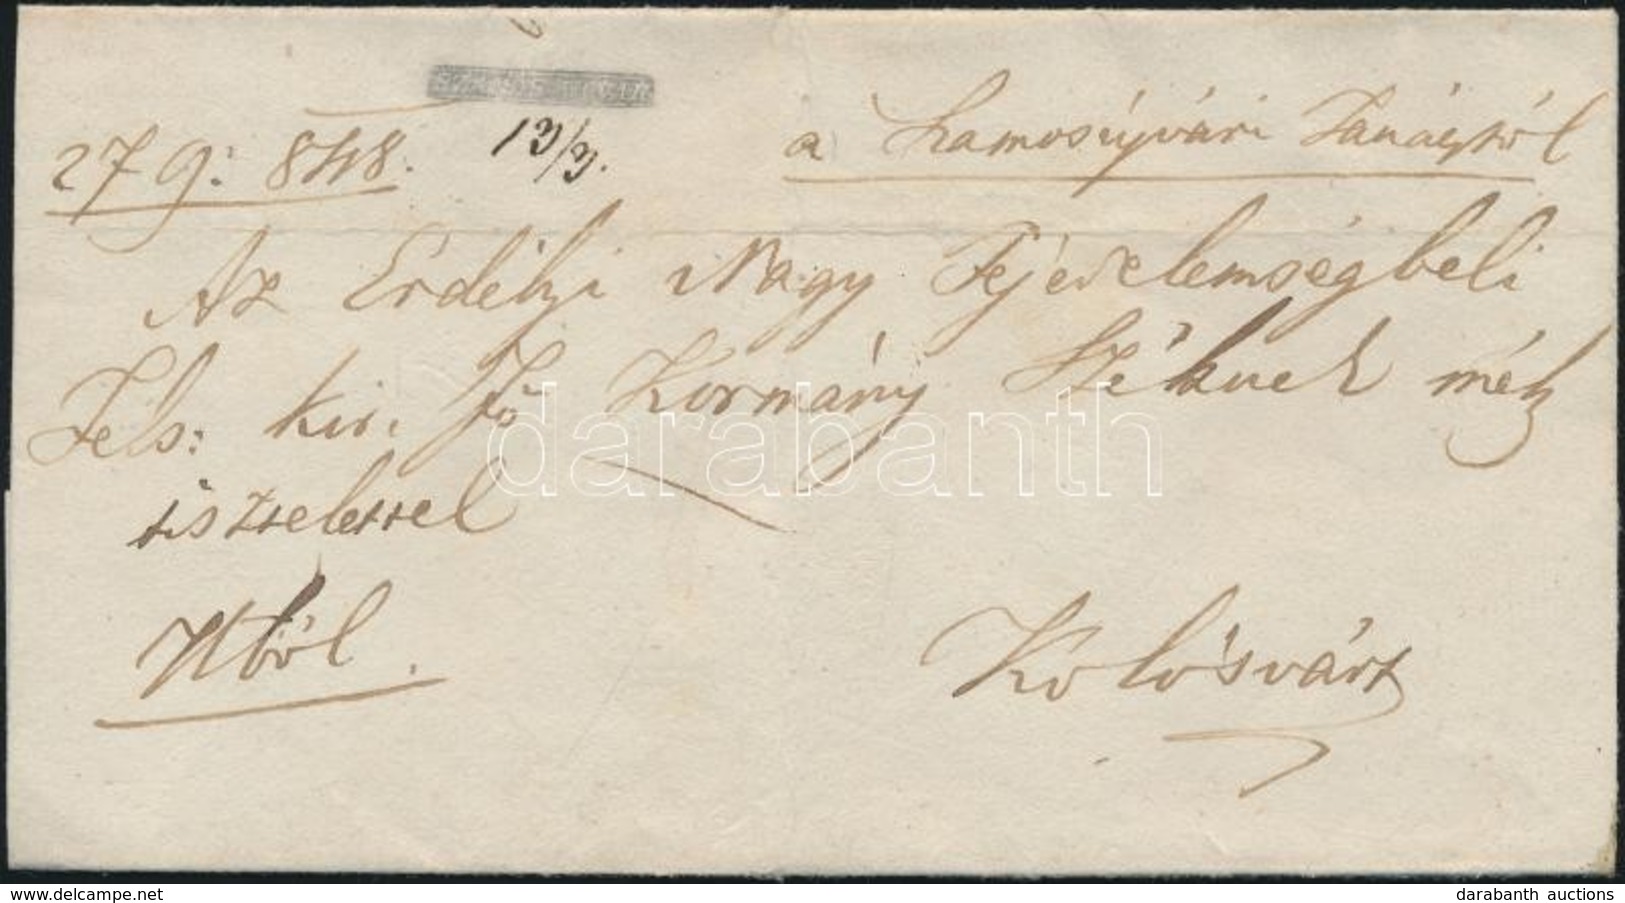 27 9: 848. 13/9. a Szamosújvári Tanácstól
Az Erdélyi Nagy Fejedelemségbeli
Fels: kir. Fő Kormány Széknek mély
tisztelettel
Kolosvárt
darabanth
darabanth auctions